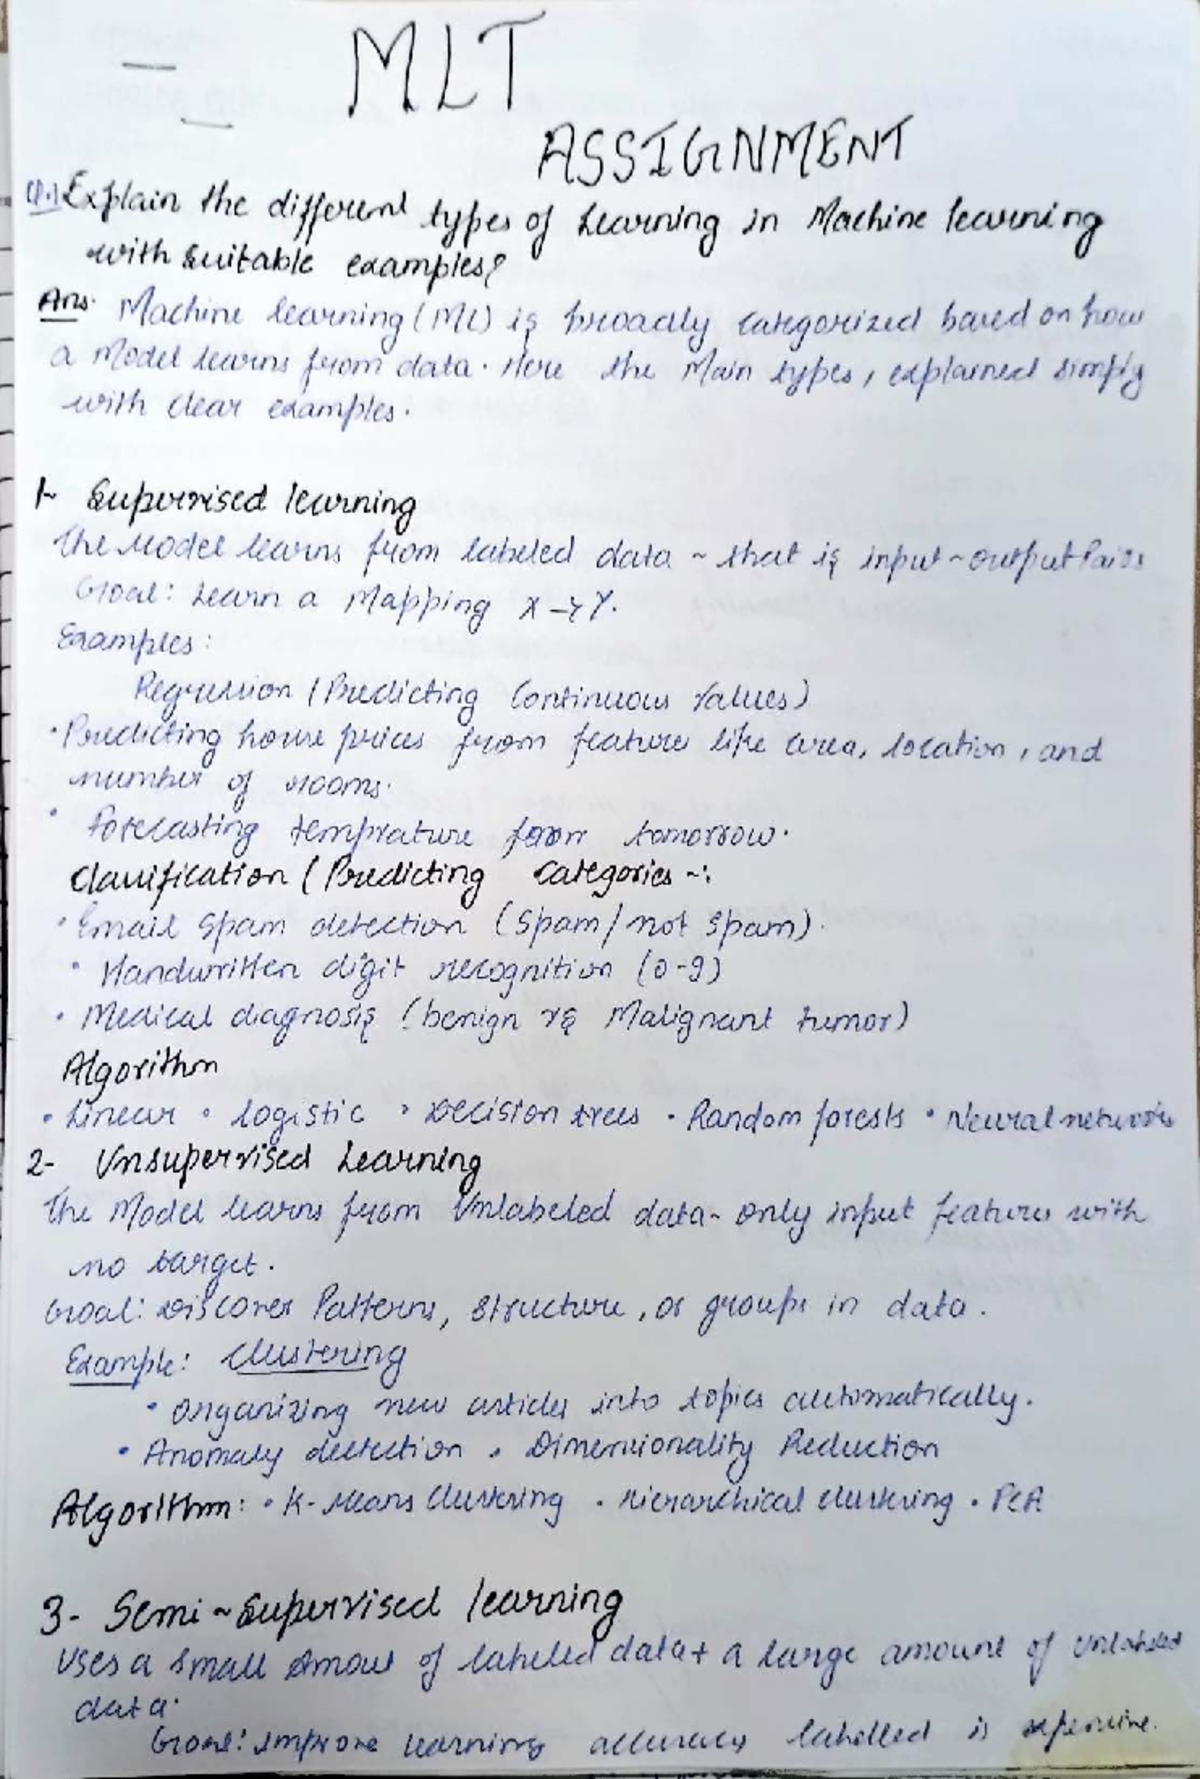 MLT
ASSIGNMENT
Q.1 Explain the different types of Learning in Machine learning
with suitable examples?
Ans. Machine learning (ML) is broadly categorized based on how
a Model learns from data. Here the Main types, explained simply
with clear examples.
1- Supervised learning
The Model learns from labeled data - that is input-output Pairs
Goal: Learn a Mapping X → Y.
Examples:
Regression (Predicting Continuous Values)
• Predicting house prices from feature like area, location, and
number of rooms.
• Forecasting temprature from tomorrow.
Classification (Predicting Categories -:
• Email Spam detection (Spam/not Spam).
• Handwritten digit recognition (0-9)
• Medical diagnosis (benign vs Malignant tumor)
Algorithm
• Linear • logistic • Decision trees • Random forests • Neural networks
2- Unsupervised Learning
The Model learns from Unlabeled data - only input features with
no target.
Goal: Discover Patterns, Structure, or groups in data.
Example: Clustering
• Organizing new articles into topics automatically.
• Anomaly detection • Dimensionality Reduction
Algorithm: • K-Means Clustering • Hierarchical clustering • PCA
3- Semi-Supervised learning
Uses a Small Amout of labeled data + a large amount of unlabeled
data.
Goal: Improve learning accuracy labelled is expensive.